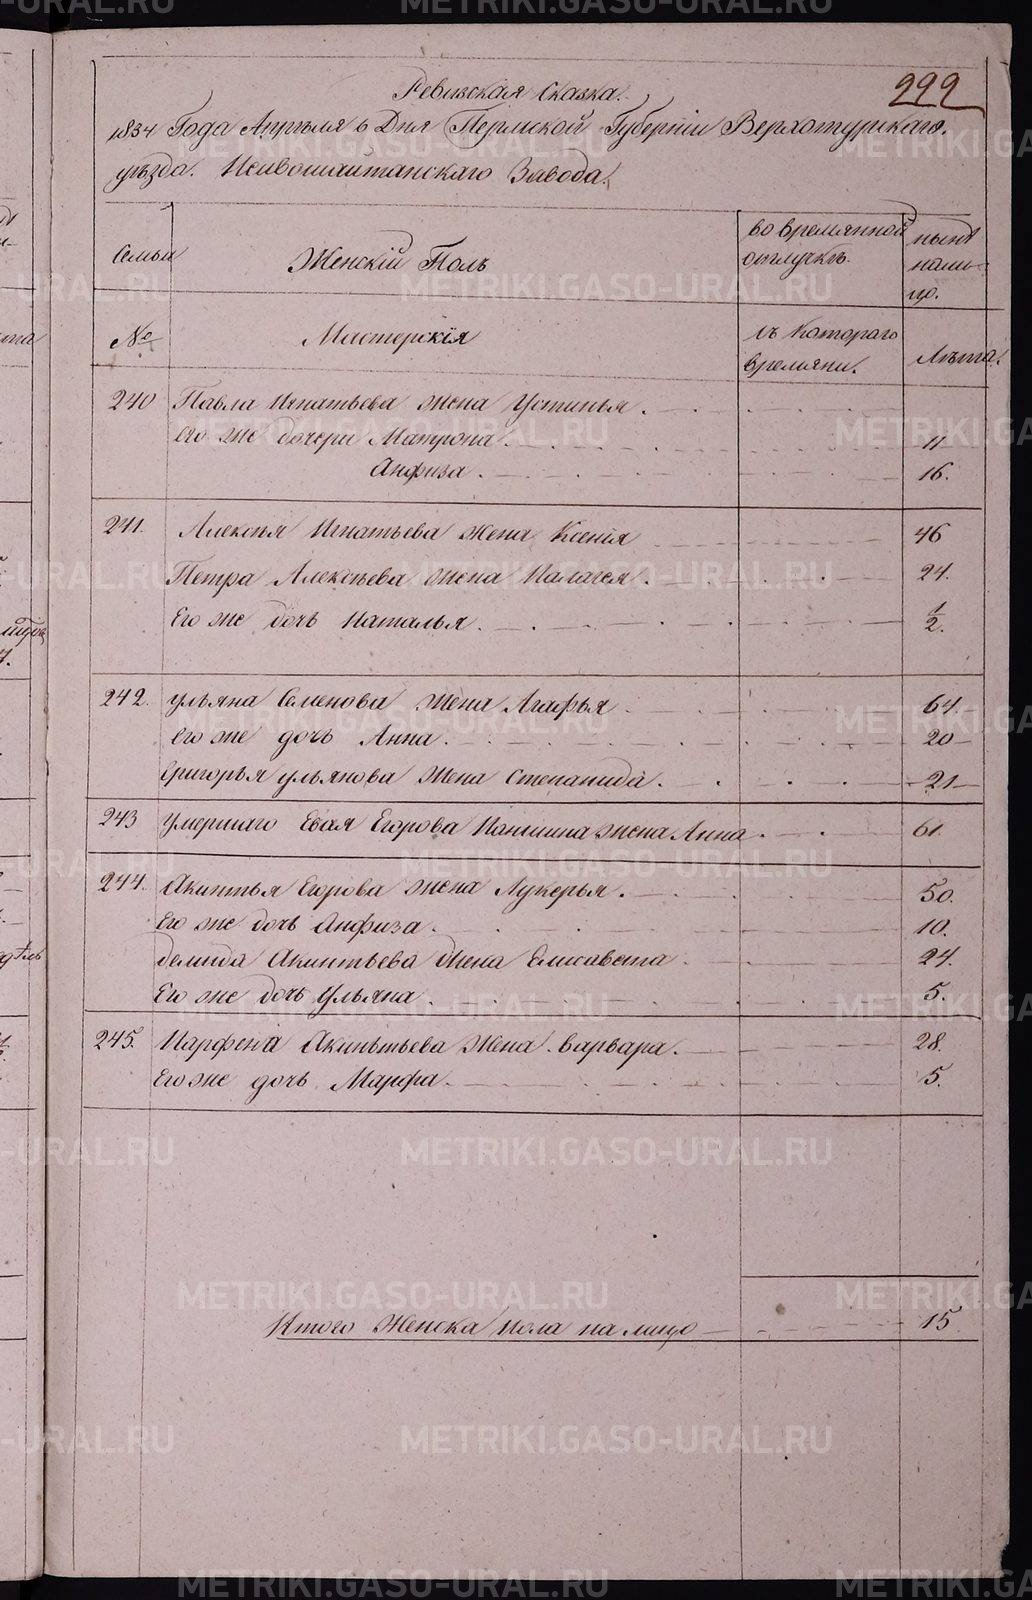 Ревизская Сказка.
222
1834 Года Апреля 6 Дня Пермской Губернiи Верхотурскаго.
уѣзда. Нейвошайтанскаго Завода.
Семьи
Женскiй Полъ
во времянной отлучкѣ.
нынѣ на лицо.
№
Мастерскiя
съ котораго времяни.
Лѣта.
240 Павла Игнатьева жена Устинья.
его же дочери Матрона. 11
Анфиза. 16.
241. Алексѣя Игнатьева жена Ксенiя 46
Петра Алексѣева жена Палагея. 24.
Его же дочь Наталья. 1/2.
242. Ульяна Семенова жена Агафья 64.
его же дочь Анна. 20
Григорья Ульянова жена Степанида. 21
243 Умершаго Евдя Егорова Паншина жена Анна. 61.
244. Акинтья Егорова жена Лукерья. 50.
Его же дочь Анфиза. 10.
Демида Акинтьева жена Елисавета. 24.
Его же дочь Ульяна. 5.
245. Парфена Акинтьева жена Варвара. 28.
Его же дочь Марфа. 5.
Итого женска пола на лицо 15
METRIKI.GASO-URAL.RU